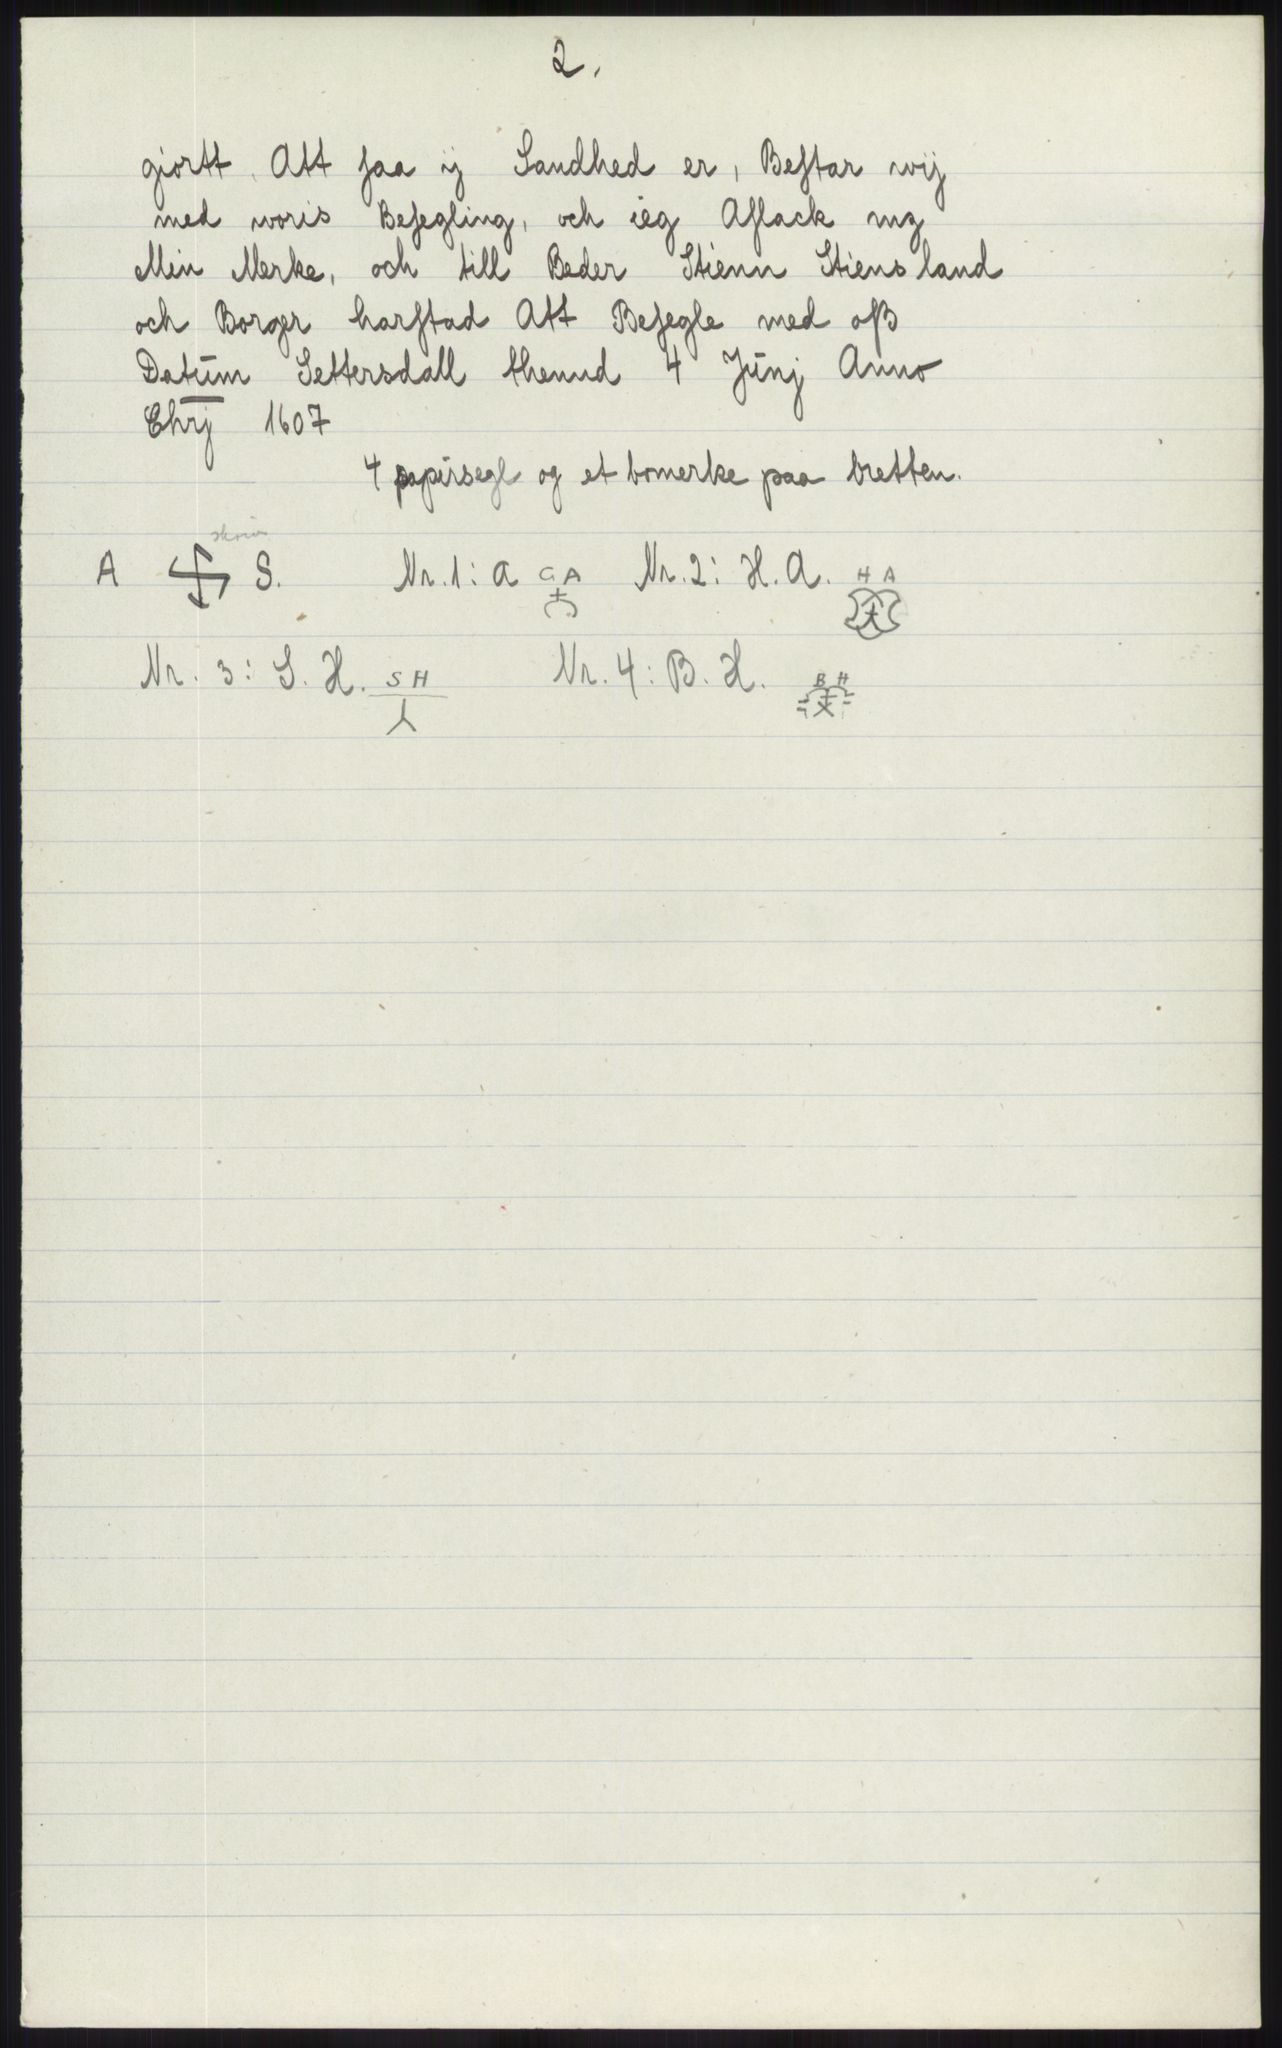 2.
giortt. Att ſaa ij Sandhed er, Beſtar wij
med woris Beſegling, och ieg Aſlack mz
Min Merke, och till Beder Stienn Stiens land
och Borger harſtad Att Beſegle med oß
Datům Settersdall thennd 4 Jůnj Anno
Chrj 1607
4 papirsegl og et bomerke paa bretten.
A S. Nr. 1: A G A Nr. 2: H. A. H A
Nr. 3: S. H. S H Nr. 4: B. H. B H